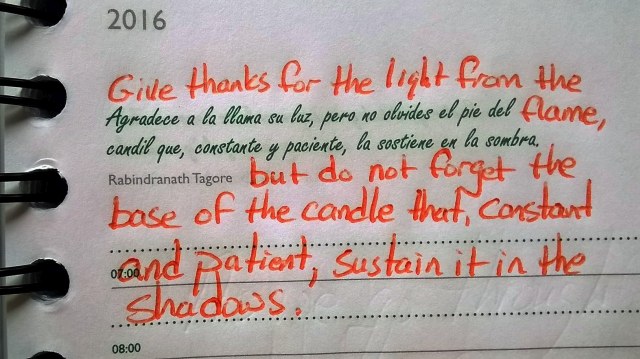 2016
Give thanks for the light from the
Agradece a la llama su luz, pero no olvides el pie del flame,
candil que, constante y paciente, la sostiene en la sombra.
Rabindranath Tagore but do not forget the
base of the candle that, constant
07:00 and patient, sustain it in the
shadows.
08:00